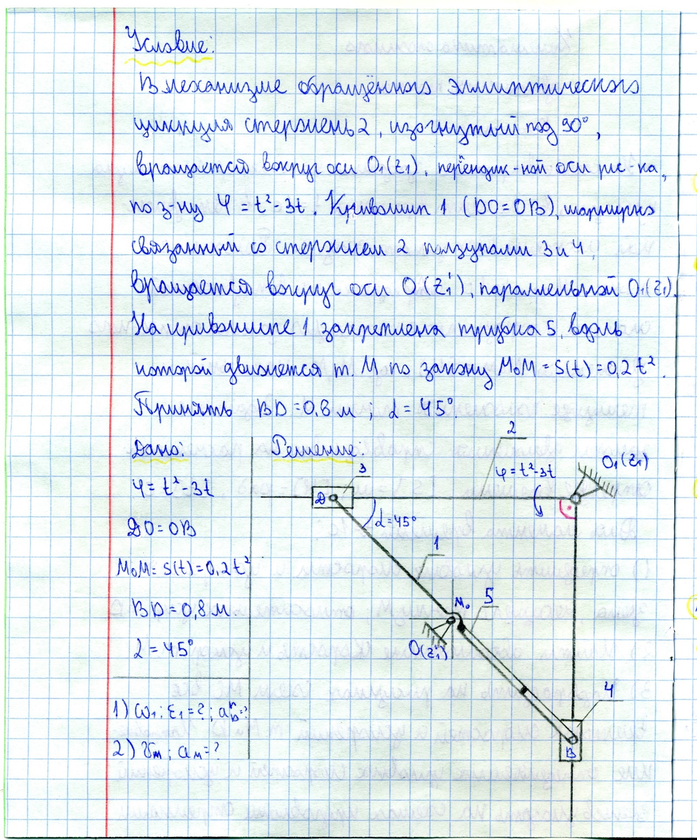 Условие:
В механизме обращённого эллиптического
циркуля стержень 2, изогнутый под 90°,
вращается вокруг оси O₁(z₁), перпендик-ной оси рис-ка,
по з-ну φ = t²-3t. Кривошип 1 (DO=OB), шарнирно
связанный со стержнем 2 ползунами 3 и 4,
вращается вокруг оси O(z₁'), параллельной O₁(z₁).
На кривошипе 1 закреплена трубка 5, вдоль
которой движется т. M по закону M₀M = S(t) = 0,2t².
Принять BD = 0,8 м ; α = 45°.
Дано:
φ = t²-3t
DO = OB
M₀M = S(t) = 0,2t²
BD = 0,8 м
α = 45°
1) ω₁ ; ε₁ = ? ;
2) vₘ ; aₘ = ?
Решение:
2
O₁(z₁)
3
φ = t²-3t
D
α = 45°
1
M₀
5
O(z₁')
4
B